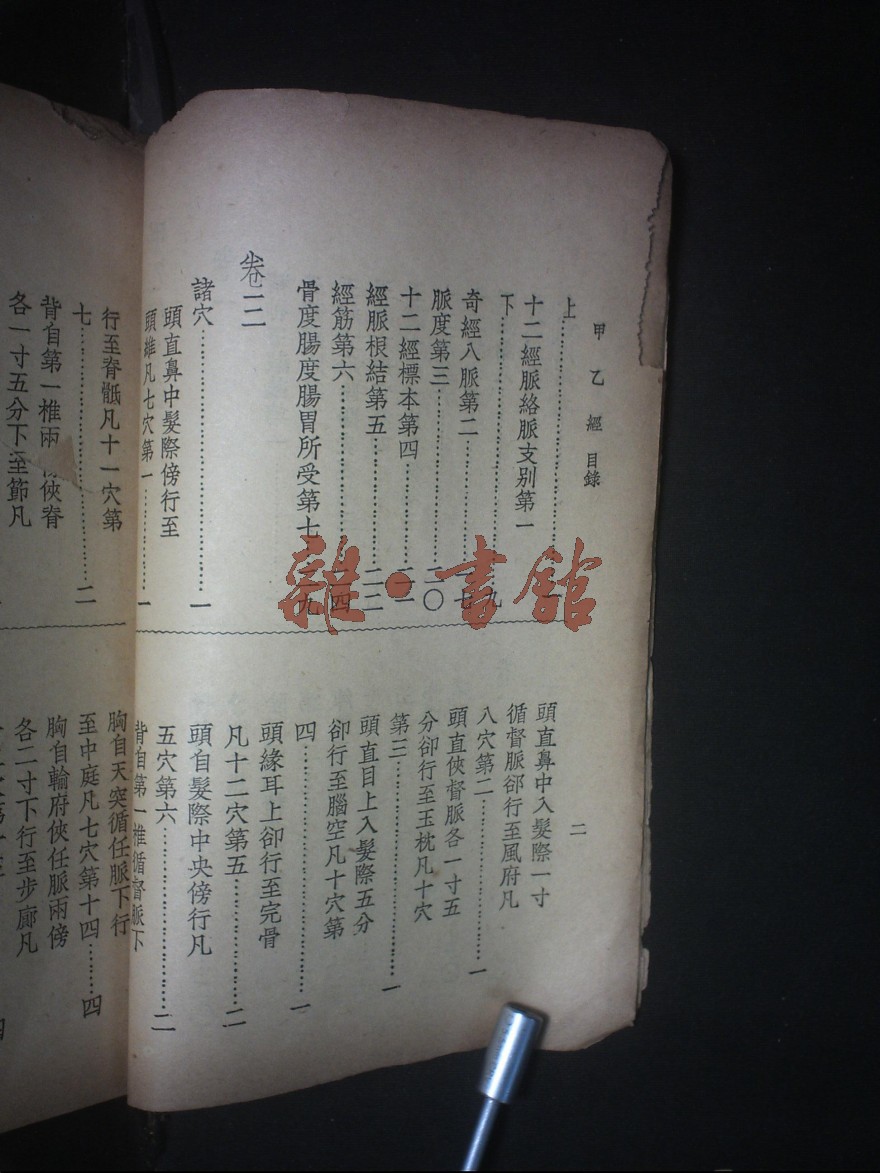 甲乙經 目錄
二
上
十二經脈絡脈支別第一
下……九
奇經八脈第二……七
脈度第三……二〇
十二經標本第四……二一
經脈根結第五……二二
經筋第六……二四
骨度腸度腸胃所受第七……九
卷三
諸穴……一
頭直鼻中髮際傍行至
頭維凡七穴第一……一
頭直鼻中入髮際一寸
循督脈卻行至風府凡
八穴第二……一
頭直俠督脈各一寸五
分卻行至玉枕凡十穴
第三……一
頭直目上入髮際五分
卻行至腦空凡十穴第
四……一
頭緣耳上卻行至完骨
凡十二穴第五……二
頭自髮際中央傍行凡
五穴第六……二
背自第一椎循督脈下
行至脊骶凡十一穴第
七……二
背自第一椎兩 俠脊
各一寸五分下至節凡
胸自天突循任脈下行
至中庭凡七穴第十四……四
胸自輸府俠任脈兩傍
各二寸下行至步廊凡
雜·書館